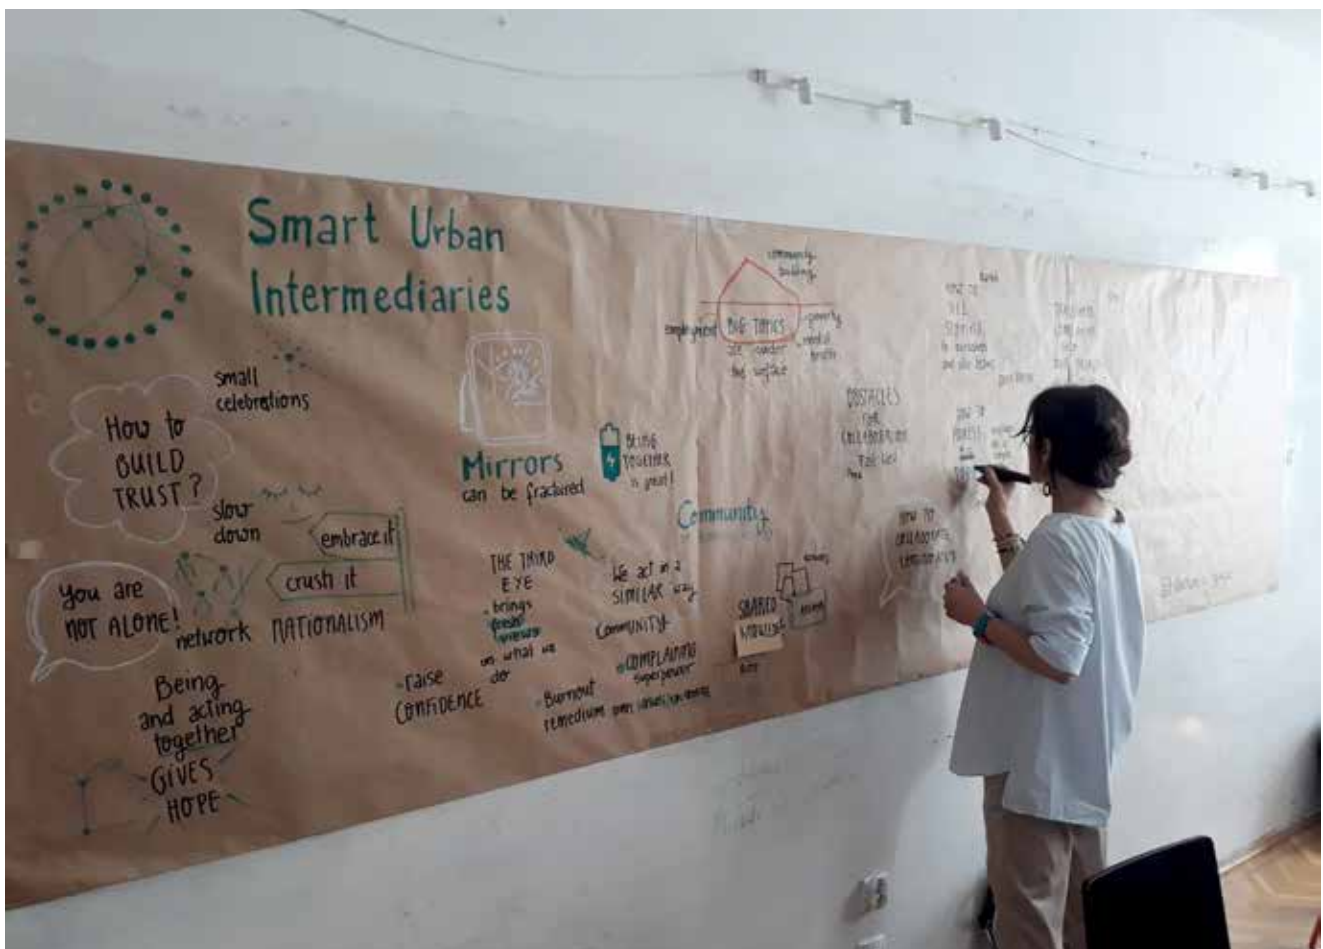 Smart Urban
Intermediaries
small
celebrations
How to
BUILD
TRUST?
slow
down
embrace it
crush it
NATIONALISM
You are
NOT ALONE!
network
Being
and acting
together
GIVES
HOPE
Mirrors
can be fractured
BEING
TOGETHER
is great!
THE THIRD
EYE
brings
fresh
views
on what we
do
raise
CONFIDENCE
Burnout
remedium
We act in a
SIMILAR way
COMMUNITY
COMPLAINING
superpower
Community
SHARED
community
building
employment
BIG TOPICS
poverty
mental
health
are under
the surface
OBSTACLES
FOR
COLLABORATION
HOW TO
TELL
STORIES
HOW TO
HOW TO
COLLABORATE